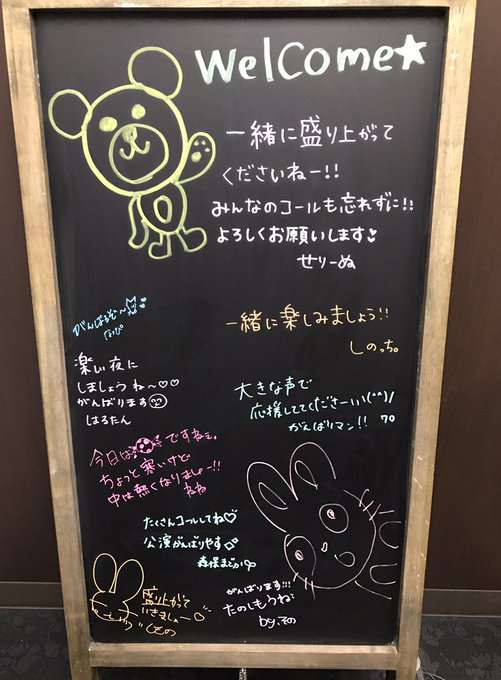 Welcome★
一緒に盛り上がって
くださいねー!!
みんなのコールも忘れずに!!
よろしくお願いします
せりーぬ
がんばるぞ〜
一緒に楽しみましょう!!
しのっち。
楽しい夜に
しましょうね〜♡♡
がんばります
はるたん
大きな声で
応援しててくださーいい(^^)/
がんばりマン!!
今日は⚽ですねぇ。
ちょっと寒いけど
中は熱くなりましょー!!
ねね
たくさんコールしてね♡
公演がんばりやす
森保まどか
盛り上がって
いきましょー♡
がんばります!!!
たのしもうね
by.その